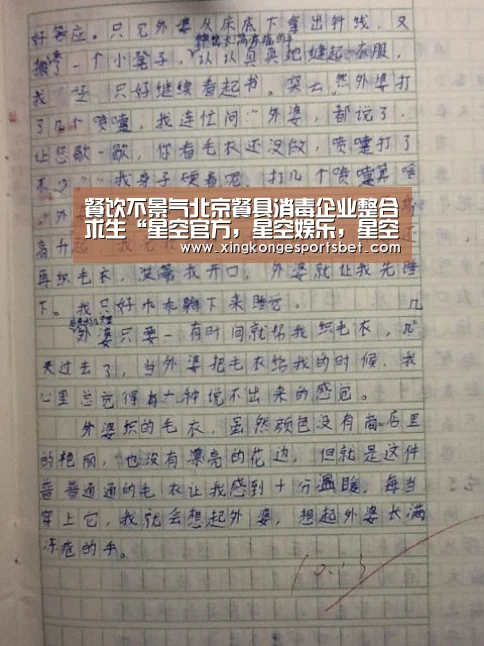 好答应。只见外婆从床底下拿出针线，又
搬了一个小凳子，认认真真地缝起衣服，
我 只好继续看起书。突然，外婆打
了几个喷嚏，我连忙问：“外婆，都说了，
让您歇一歇，你看毛衣还没做，喷嚏打了
不少。”“我身子硬着呢，打几个喷嚏算啥
餐饮不景气北京餐具消毒企业整合
求生“星空官方，星空娱乐，星空
www.xingkongesportsbet.com
再织毛衣，没等我开口，外婆就让我先睡
下。我只好乖乖躺下来睡觉。
外婆只要一有时间就帮我织毛衣，几
天过去了，当外婆把毛衣给我的时候，我
心里总觉得有一种说不出来的感觉。
外婆织的毛衣，虽然颜色没有商店里
的艳丽，也没有漂亮的花边，但就是这件
普普通通的毛衣让我感到十分温暖，每当
穿上它，我就会想起外婆，想起外婆长满
冻疮的手。